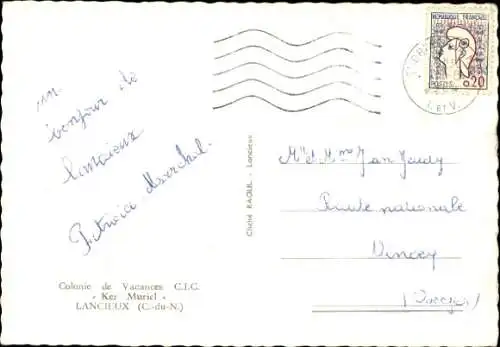 REPUBLIQUE FRANÇAISE
POSTES 0.20
I. ET V.
un
bonjour de
Lancieux
Patricia Marchal.
Cliché RAOUL - Lancieux
Mr et Mme Jan
Route nationale
Vincey
(Vosges)
Colonie de Vacances C.I.C.
- Ker Muriel -
LANCIEUX (C.-du-N.)